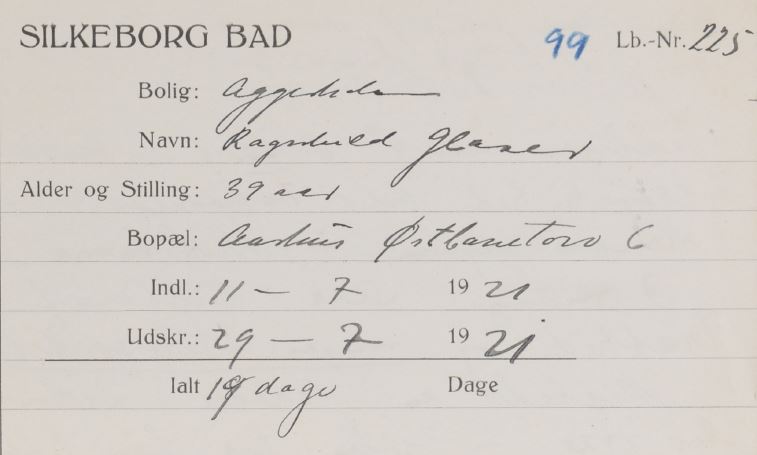 SILKEBORG BAD 99 Lb.-Nr. 225
Bolig: Aggersholm
Navn: Ragnhild Glaser
Alder og Stilling: 39 aar
Bopæl: Aarhus Østbanetorv 6
Indl.: 11 – 7 19 21
Udskr.: 29 – 7 19 21
Ialt 19 dage Dage